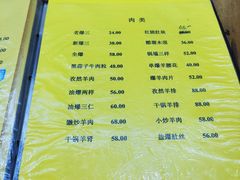 肉类
老爆三 24.00 红烧肚丝
新爆三 38.00 醋溜木须 36.00
全爆 58.00 锅塌三样 52.00
黑蒜子牛肉粒 48.00 单爆羊腰花 40.00
孜然羊肉 50.00 爆羊肉片 52.00
油爆两样 58.00 孜然羊排 88.00
油爆三仁 60.00 干锅羊排 88.00
馓炒羊肉 68.00 小炒羊肉 58.00
干锅羊肾 58.00 盐爆肚丝 56.00